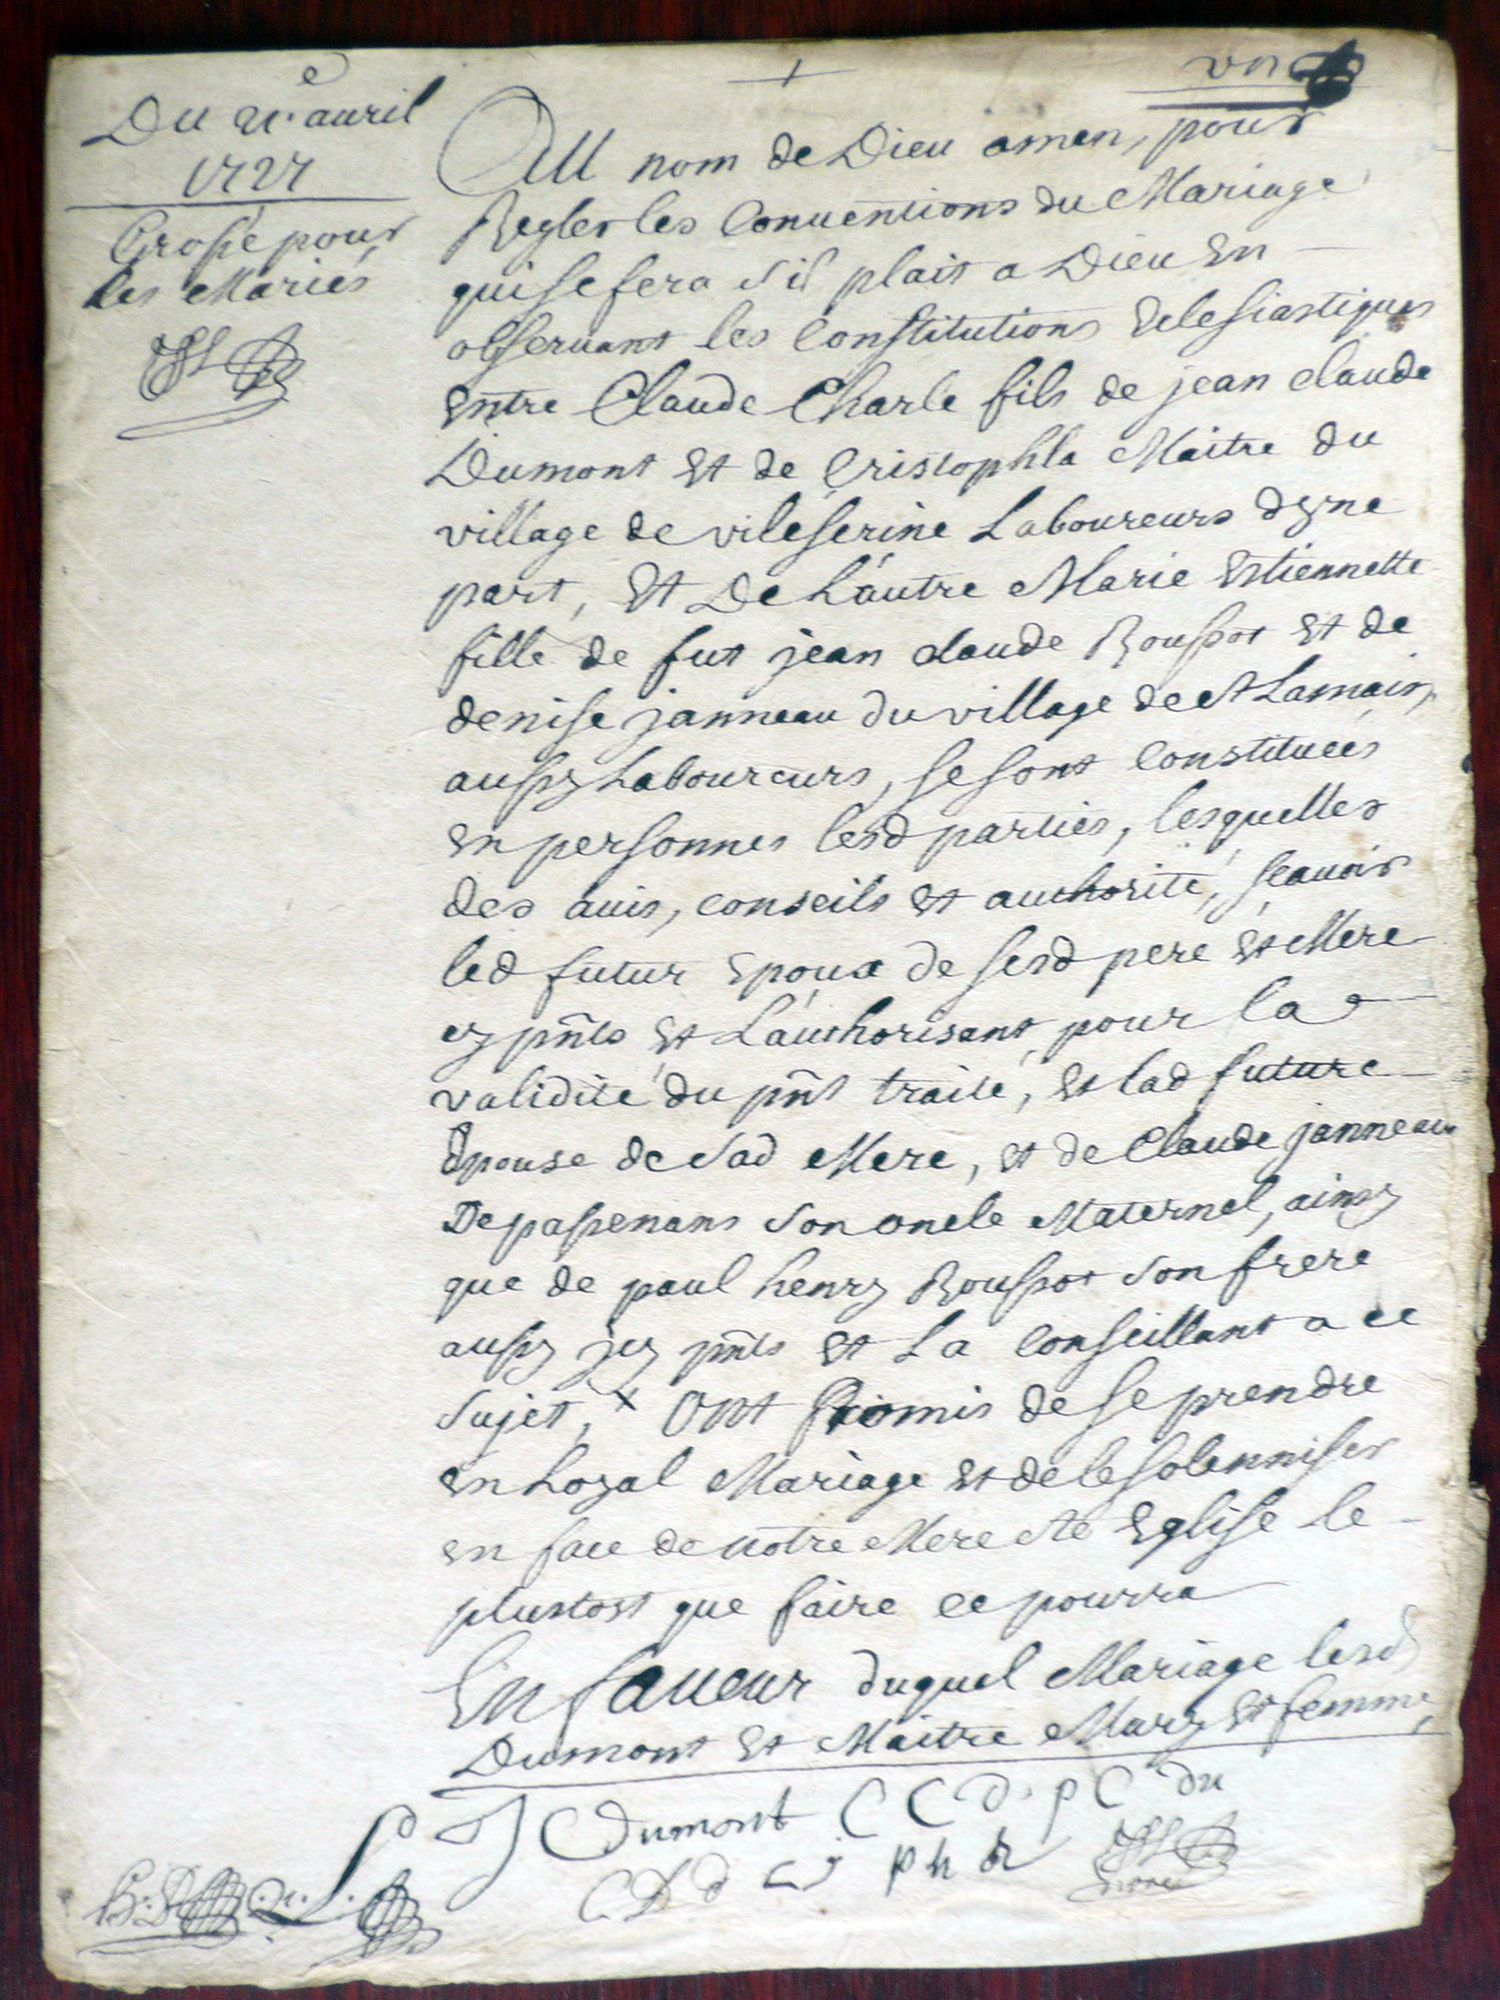 Du 21.e auril
1727
Grosse pour
les Mariés
vn
Au nom de Dieu amen, pour
Regler les Conuentions du Mariage
qui se fera s'il plait a Dieu En
obseruant les Constitutions Eclesiastiques
Entre Claude Charle fils de jean claude
Dumont Et de Cristophla Maitre du
village de vileserine Laboureurs d'yne
part, Et De L'autre Marie Estiennette
fille de fut jean claude Roussot Et de
denise janneau du village de St Lamain,
aussy Laboureurs, se sont Constituées
En personnes lesd parties, lesquelles
des auis, conseils Et authorité, scauoir
led futur Epoux de sesd pere Et Mere
cy pñts Et L'authorisant pour la
validité du pñt traité, Et lad future
Epouse de sad Mere, Et de Claude janneau
De passenans son oncle Maternel, ainsy
que de paul henry Roussot son frere
aussy jcy pñts Et La Conseillant a ce
sujet, x Ont promis de se prendre
En Loyal Mariage Et de le solenniser
En face de notre Mere Ste Eglise le
plustost que faire ce pourra
En faueur duquel Mariage lesd
Dumont Et Maitre Mary Et femme,
J C Dumont C C d. p C du
C D d C j p h R